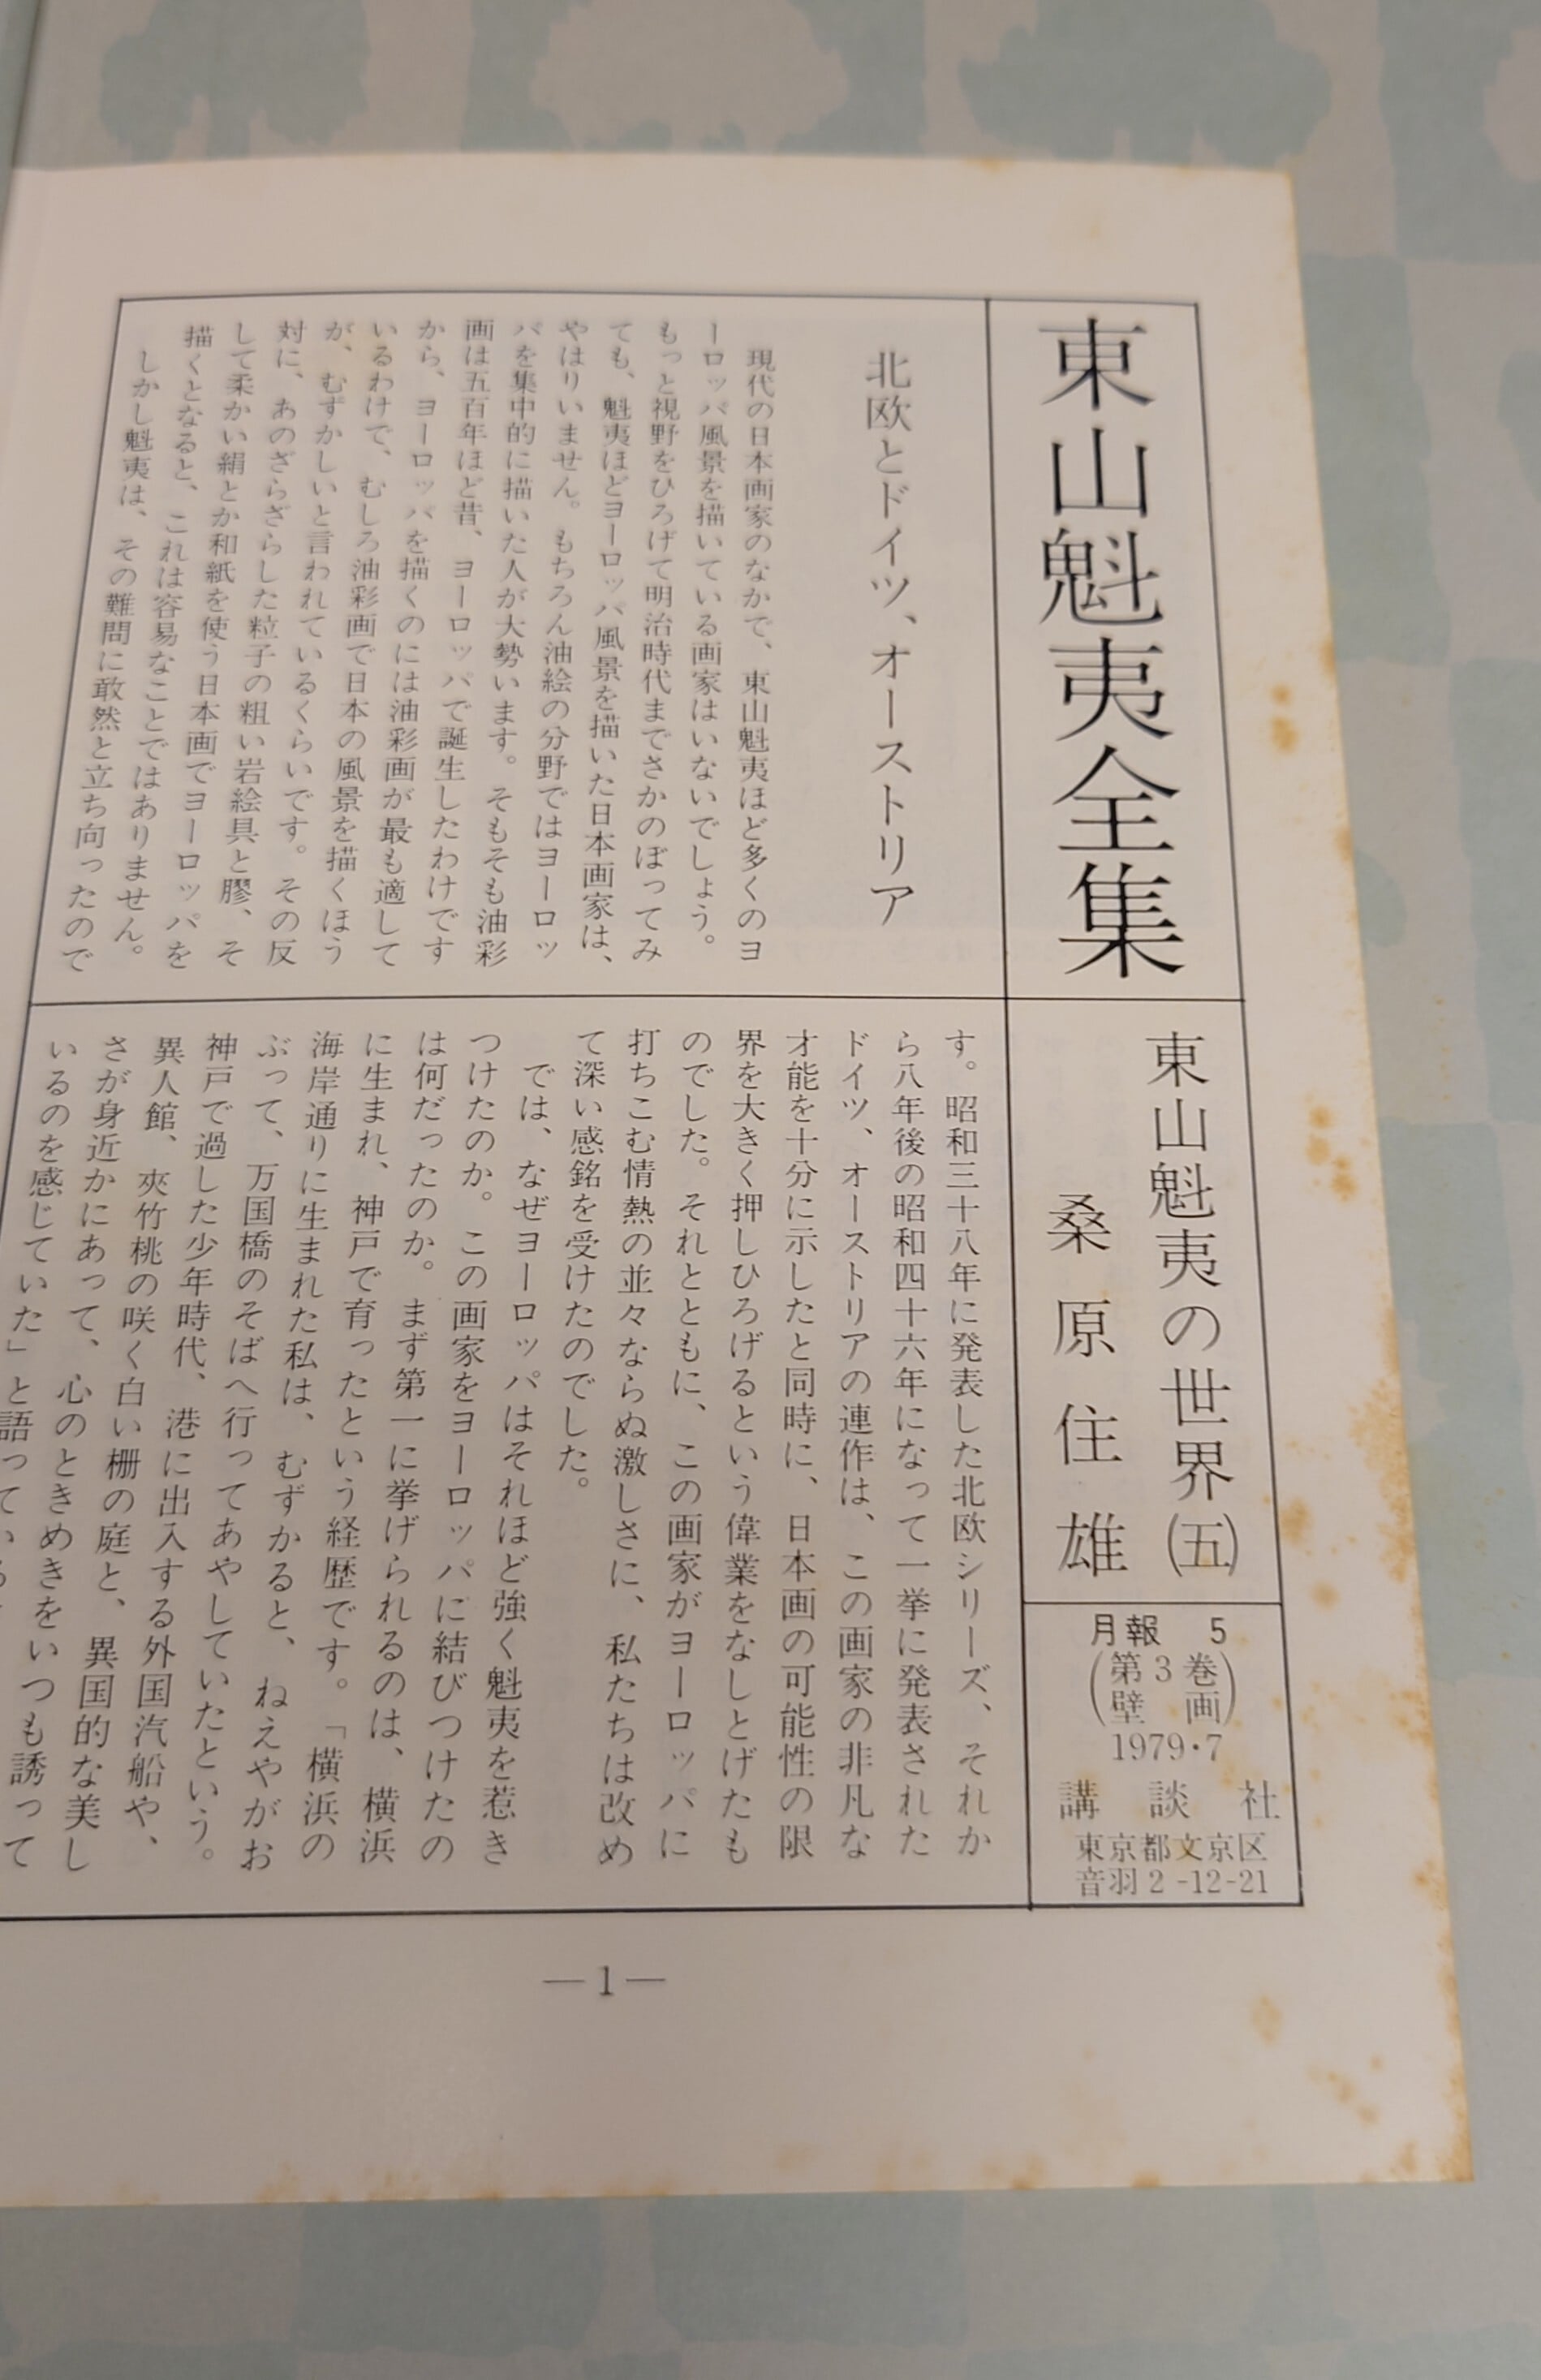 東山魁夷全集
東山魁夷の世界㈤
桑原住雄
月報 5
(第3巻
壁画)
1979・7
講談社
東京都文京区
音羽2-12-21
北欧とドイツ、オーストリア
現代の日本画家のなかで、東山魁夷ほど多くのヨ
ーロッパ風景を描いている画家はいないでしょう。
もっと視野をひろげて明治時代までさかのぼってみ
ても、魁夷ほどヨーロッパ風景を描いた日本画家は、
やはりいません。もちろん油絵の分野ではヨーロッ
パを集中的に描いた人が大勢います。そもそも油彩
画は五百年ほど昔、ヨーロッパで誕生したわけです
から、ヨーロッパを描くのには油彩画が最も適して
いるわけで、むしろ油彩画で日本の風景を描くほう
が、むずかしいと言われているくらいです。その反
対に、あのざらざらした粒子の粗い岩絵具と膠、そ
して柔かい絹とか和紙を使う日本画でヨーロッパを
描くとなると、これは容易なことではありません。
しかし魁夷は、その難問に敢然と立ち向ったので
す。昭和三十八年に発表した北欧シリーズ、それか
ら八年後の昭和四十六年になって一挙に発表された
ドイツ、オーストリアの連作は、この画家の非凡な
才能を十分に示したと同時に、日本画の可能性の限
界を大きく押しひろげるという偉業をなしとげたも
のでした。それとともに、この画家がヨーロッパに
打ちこむ情熱の並々ならぬ激しさに、私たちは改め
て深い感銘を受けたのでした。
では、なぜヨーロッパはそれほど強く魁夷を惹き
つけたのか。この画家をヨーロッパに結びつけたの
は何だったのか。まず第一に挙げられるのは、横浜
に生まれ、神戸で育ったという経歴です。「横浜の
海岸通りに生まれた私は、むずかると、ねえやがお
ぶって、万国橋のそばへ行ってあやしていたという。
神戸で過した少年時代、港に出入する外国汽船や、
異人館、夾竹桃の咲く白い柵の庭と、異国的な美し
さが身近かにあって、心のときめきをいつも誘って
いるのを感じていた」と語ってい
—1—